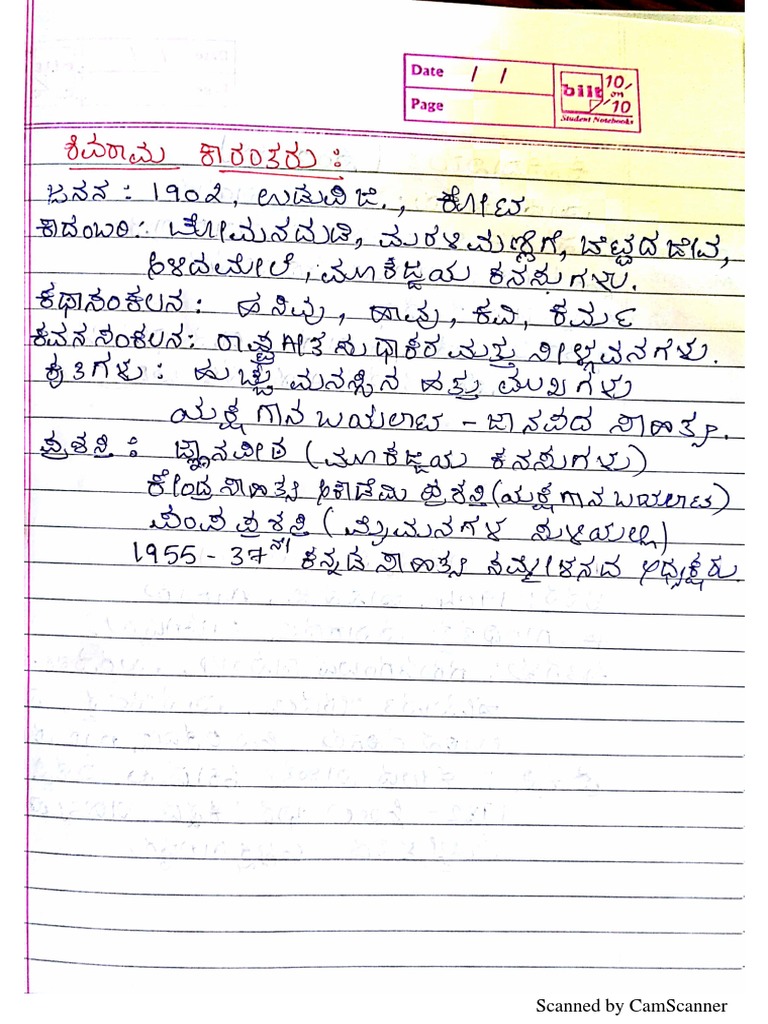 Date / /
Page
bilt
10/
on
10
Student Notebooks
ಶಿವರಾಮ ಕಾರಂತರು :
ಜನನ : 1902, ಉಡುಪಿ ಜಿ., ಕೋಟ
ಕಾದಂಬರಿ: ಚೋಮನದುಡಿ, ಮರಳಿಮಣ್ಣಿಗೆ, ಬೆಟ್ಟದ ಜೀವ,
ಅಳಿದಮೇಲೆ, ಮೂಕಜ್ಜಿಯ ಕನಸುಗಳು.
ಕಥಾಸಂಕಲನ : ಹಸಿವು, ಹಾವು, ಕವಿ, ಕರ್ಮ
ಕವನ ಸಂಕಲನ: ರಾಷ್ಟ್ರಗೀತ ಸುಧಾಕರ ಮತ್ತು ಸೀಳ್ಗವನಗಳು.
ಕೃತಿಗಳು : ಹುಚ್ಚು ಮನಸ್ಸಿನ ಹತ್ತು ಮುಖಗಳು
ಯಕ್ಷಗಾನ ಬಯಲಾಟ - ಜಾನಪದ ಸಾಹಿತ್ಯ.
ಪ್ರಶಸ್ತಿ : ಜ್ಞಾನಪೀಠ (ಮೂಕಜ್ಜಿಯ ಕನಸುಗಳು)
ಕೇಂದ್ರ ಸಾಹಿತ್ಯ ಅಕಾಡೆಮಿ ಪ್ರಶಸ್ತಿ (ಯಕ್ಷಗಾನ ಬಯಲಾಟ)
ಪಂಪ ಪ್ರಶಸ್ತಿ (ಮೈಮನಗಳ ಸುಳಿಯಲ್ಲಿ)
1955 - 37ನೇ ಕನ್ನಡ ಸಾಹಿತ್ಯ ಸಮ್ಮೇಳನದ ಅಧ್ಯಕ್ಷರು.
Scanned by CamScanner